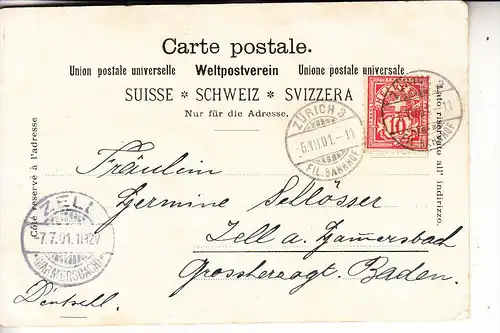 Carte postale.
Union postale universelle Weltpostverein Unione postale universale
SUISSE * SCHWEIZ * SVIZZERA
Nur für die Adresse.
Côté réservé à l'adresse
Lato riservato all' indirizzo.
ZÜRICH 3
-6.VII.01.-11
FIL. BAHNHOF
10
ZELL
7.7.01. 11-12V
(HARMERSBACH)
Fräulein
Hermine Schlösser
Zell a. Hamersbad
Grossherzogt. Baden.